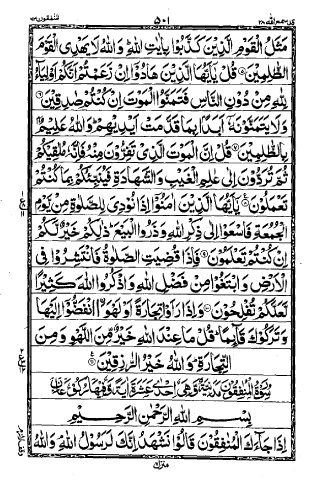 قد سمع الله ٢٨
٥٠١
المنٰفقون ٦٣
مَثَلُ الْقَوْمِ الَّذِیْنَ كَذَّبُوْا بِاٰیٰتِ اللّٰهِ وَاللّٰهُ لَا یَهْدِی الْقَوْمَ
الظّٰلِمِیْنَ قُلْ یٰۤاَیُّهَا الَّذِیْنَ هَادُوْۤا اِنْ زَعَمْتُمْ اَنَّكُمْ اَوْلِیَآءُ
لِلّٰهِ مِنْ دُوْنِ النَّاسِ فَتَمَنَّوُا الْمَوْتَ اِنْ كُنْتُمْ صٰدِقِیْنَ
وَلَا یَتَمَنَّوْنَهٗۤ اَبَدًۢا بِمَا قَدَّمَتْ اَیْدِیْهِمْ وَاللّٰهُ عَلِیْمٌۢ
بِالظّٰلِمِیْنَ قُلْ اِنَّ الْمَوْتَ الَّذِیْ تَفِرُّوْنَ مِنْهُ فَاِنَّهٗ مُلٰقِیْكُمْ
ثُمَّ تُرَدُّوْنَ اِلٰی عٰلِمِ الْغَیْبِ وَالشَّهَادَةِ فَیُنَبِّئُكُمْ بِمَا كُنْتُمْ
تَعْمَلُوْنَ یٰۤاَیُّهَا الَّذِیْنَ اٰمَنُوْۤا اِذَا نُوْدِیَ لِلصَّلٰوةِ مِنْ یَّوْمِ
الْجُمُعَةِ فَاسْعَوْا اِلٰی ذِكْرِ اللّٰهِ وَذَرُوا الْبَیْعَ ذٰلِكُمْ خَیْرٌ لَّكُمْ
اِنْ كُنْتُمْ تَعْلَمُوْنَ فَاِذَا قُضِیَتِ الصَّلٰوةُ فَانْتَشِرُوْا فِی
الْاَرْضِ وَابْتَغُوْا مِنْ فَضْلِ اللّٰهِ وَاذْكُرُوا اللّٰهَ كَثِیْرًا
لَّعَلَّكُمْ تُفْلِحُوْنَ وَاِذَا رَاَوْا تِجَارَةً اَوْ لَهْوَا ۨانْفَضُّوْۤا اِلَیْهَا
وَتَرَكُوْكَ قَآئِمًا قُلْ مَا عِنْدَ اللّٰهِ خَیْرٌ مِّنَ اللَّهْوِ وَمِنَ
التِّجَارَةِ وَاللّٰهُ خَیْرُ الرّٰزِقِیْنَ
سُوْرَةُ الْمُنٰفِقُوْنَ مَدَنِیَّةٌ وَّهِیَ اِحْدٰی عَشْرَةَ اٰیَةً وَّفِیْهَا رُكُوْعَانِ
بِسْمِ اللّٰهِ الرَّحْمٰنِ الرَّحِیْمِ
اِذَا جَآءَكَ الْمُنٰفِقُوْنَ قَالُوْا نَشْهَدُ اِنَّكَ لَرَسُوْلُ اللّٰهِ وَاللّٰهُ
منزل ٧